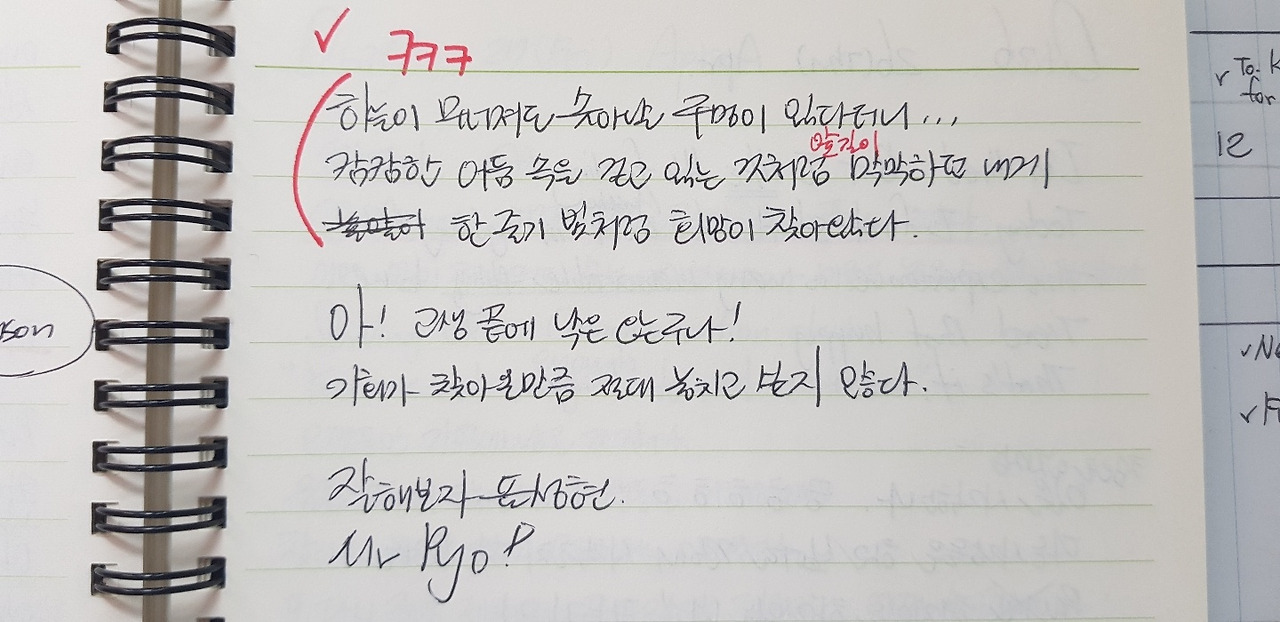 ✓ ㅋㅋㅋ
하늘이 무너져도 솟아날 구멍이 있다더니...
앞길이
캄캄한 어둠 속을 걷고 있는 것처럼 막막하던 내게
한 줄기 빛처럼 희망이 찾아왔다.
아! 고생 끝에 낙은 있는구나!
기회가 찾아온만큼 절대 놓치고 싶지 않다.
잘해보자 표성현.
Mr Pyo!
✓ To. K
for
12
✓ Ne
✓ F
son